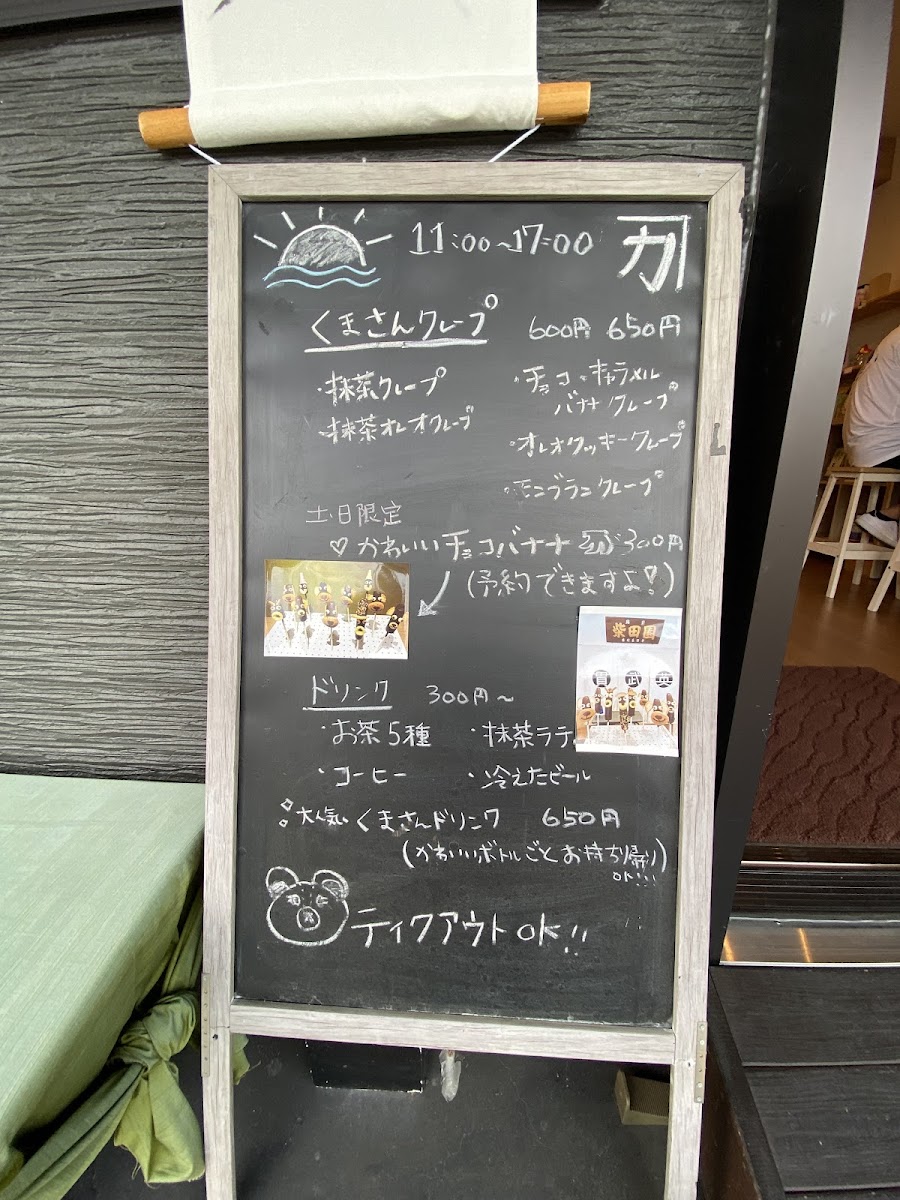 11:00~17:00
くまさんクレープ 600円 650円
・抹茶クレープ
・抹茶オレオクレープ
・チョコ・キャラメル
バナナクレープ
・オレオクッキークレープ
・モンブランクレープ
土・日限定
♡かわいいチョコバナナ 300円
(予約できますよ!)
柴田園
賀 武 英
ドリンク 300円~
・お茶5種
・抹茶ラテ
・コーヒー
・冷えたビール
大人気 くまさんドリンク 650円
(かわいいボトルごとお持ち帰り)
OK!!!
ティクアウトOK!!